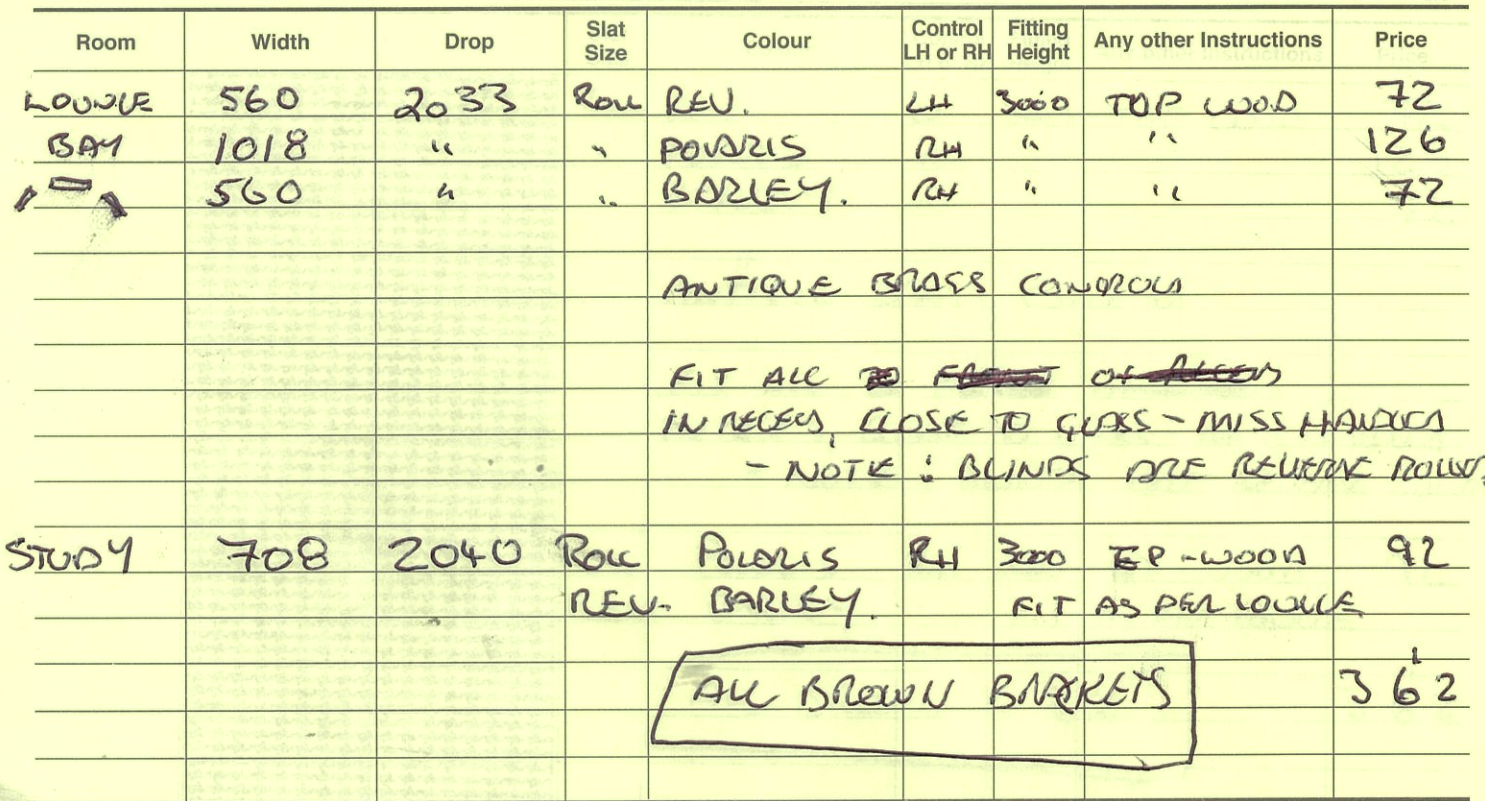 Room Width Drop Slat Size Colour Control LH or RH Fitting Height Any other Instructions Price
LOUNGE 560 2033 Roll REV. LH 3000 TOP WOOD 72
BAY 1018 " " POLARIS RH " " 126
560 " " BARLEY. RH " " 72
ANTIQUE BRASS CONTROLS
FIT ALL
IN RECESS, CLOSE TO GLASS - MISS HANDLES
- NOTE : BLINDS ARE REVERSE ROLLERS
STUDY 708 2040 Roll POLARIS RH 3000 WOOD 92
REV. BARLEY. FIT AS PER LOUNGE
ALL BROWN BRACKETS 362